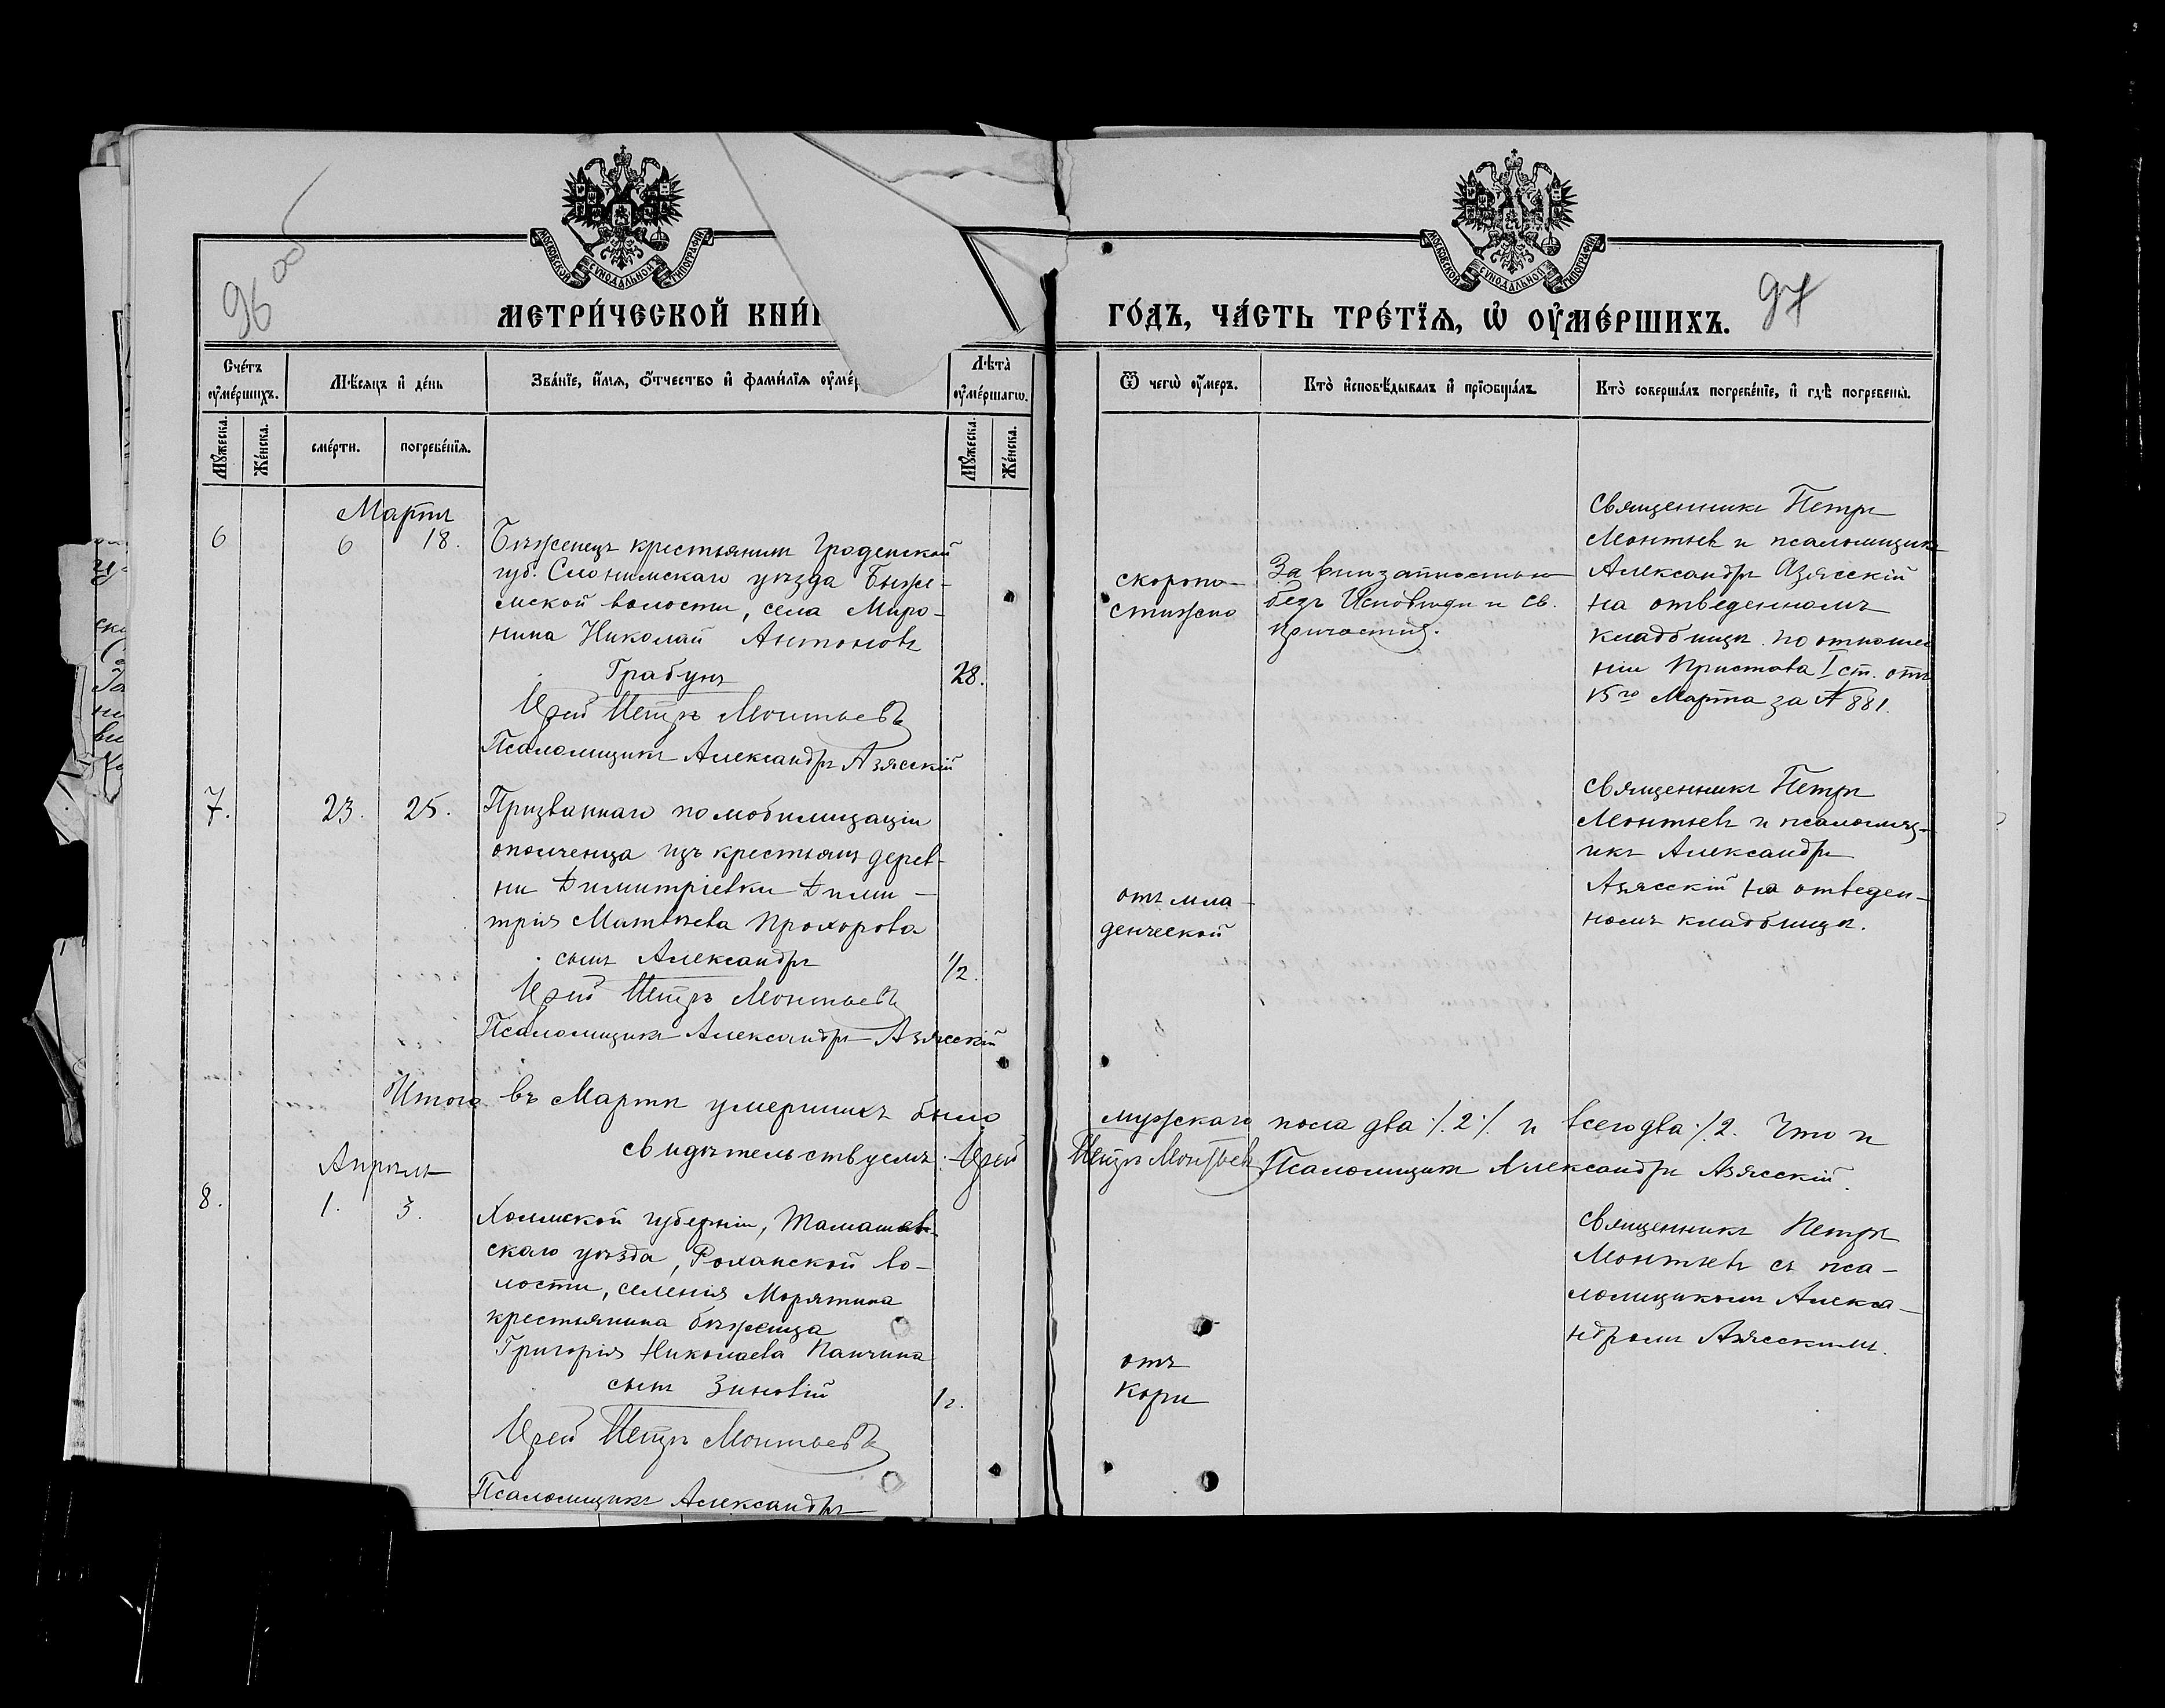 96
МОСКОВСКОЙ СѴНОДАЛЬНОЙ ТИПОГРАФІИ
МОСКОВСКОЙ СѴНОДАЛЬНОЙ ТИПОГРАФІИ
97
МЕТРИ́ЧЕСКОЙ КНИ́
ГО́ДЪ, ЧА́СТЬ ТРЕ́ТЇѦ, Ѡ҆ ОУ҆МЕ́РШИХЪ.
Сче́тъ оу҆ме́ршихъ.
Мѣ́сяцъ и҆ де́нь
Зва́нїе, и҆́мѧ, ѻ҆́тчество и҆ фами́лїѧ оу҆ме́р
Лѣта̀ оу҆ме́ршагѡ.
Ѿ чегѡ̀ оу҆́меръ.
Кто̀ и҆сповѣ́дывалъ и҆ прїѡбща́лъ
Кто̀ соверша́лъ погребе́нїе, и҆ гдѣ̀ погребены̀.
Мꙋ́жеска.
Же́нска.
сме́рти.
погребе́нїѧ.
Мꙋ́жеска.
Же́нска.
Мартъ
6 6 18.
Бѣженецъ крестьянинъ Гроденской
губ. Слонимскаго уѣзда
мской волости, села Миро-
нина Николай Антоновъ
Грабунъ 28.
Іерей Петръ Монтьевъ
Псаломщикъ Александръ Азясскій
скоропо-
стижно
За внезапностью
безъ Исповѣди и св.
причастія.
Священникъ Петръ
Монтьевъ и псаломщикъ
Александръ Азясскій
на отведенномъ
кладбищѣ по отноше
ніи Пристава I ст. отъ
15го Марта за № 881.
7. 23. 25.
Призваннаго по мобилизаціи
ополченца изъ крестьянъ дерев-
ни Димитріевки Дими-
трія Матвѣева Прохорова
сынъ Александръ 1/2.
Іерей Петръ Монтьевъ
Псаломщикъ Александръ Азясскій
отъ мла-
денческой
Священникъ Петръ
Монтьевъ и псаломщ-
икъ Александръ
Азясскій на отведен-
номъ кладбищѣ.
Итого въ Мартѣ умершихъ было мужскаго пола два ./.2./. и всего два ./.2. Что и
свидѣтельствуемъ: Іерей Петръ Монтьевъ Псаломщикъ Александръ Азясскій.
Апрѣль
8. 1. 3.
Холмской губерніи, Тамашев-
скаго уѣзда, Роханской во-
лости, селенія Морятина
крестьянина бѣженца
Григорія Николаева Панчина
сынъ Зиновій 1 г.
Іерей Петръ Монтьевъ
Псаломщикъ Александръ
отъ
кори
Священникъ Петръ
Монтьевъ съ пса-
ломщикомъ Алекса-
ндромъ Азясскимъ.